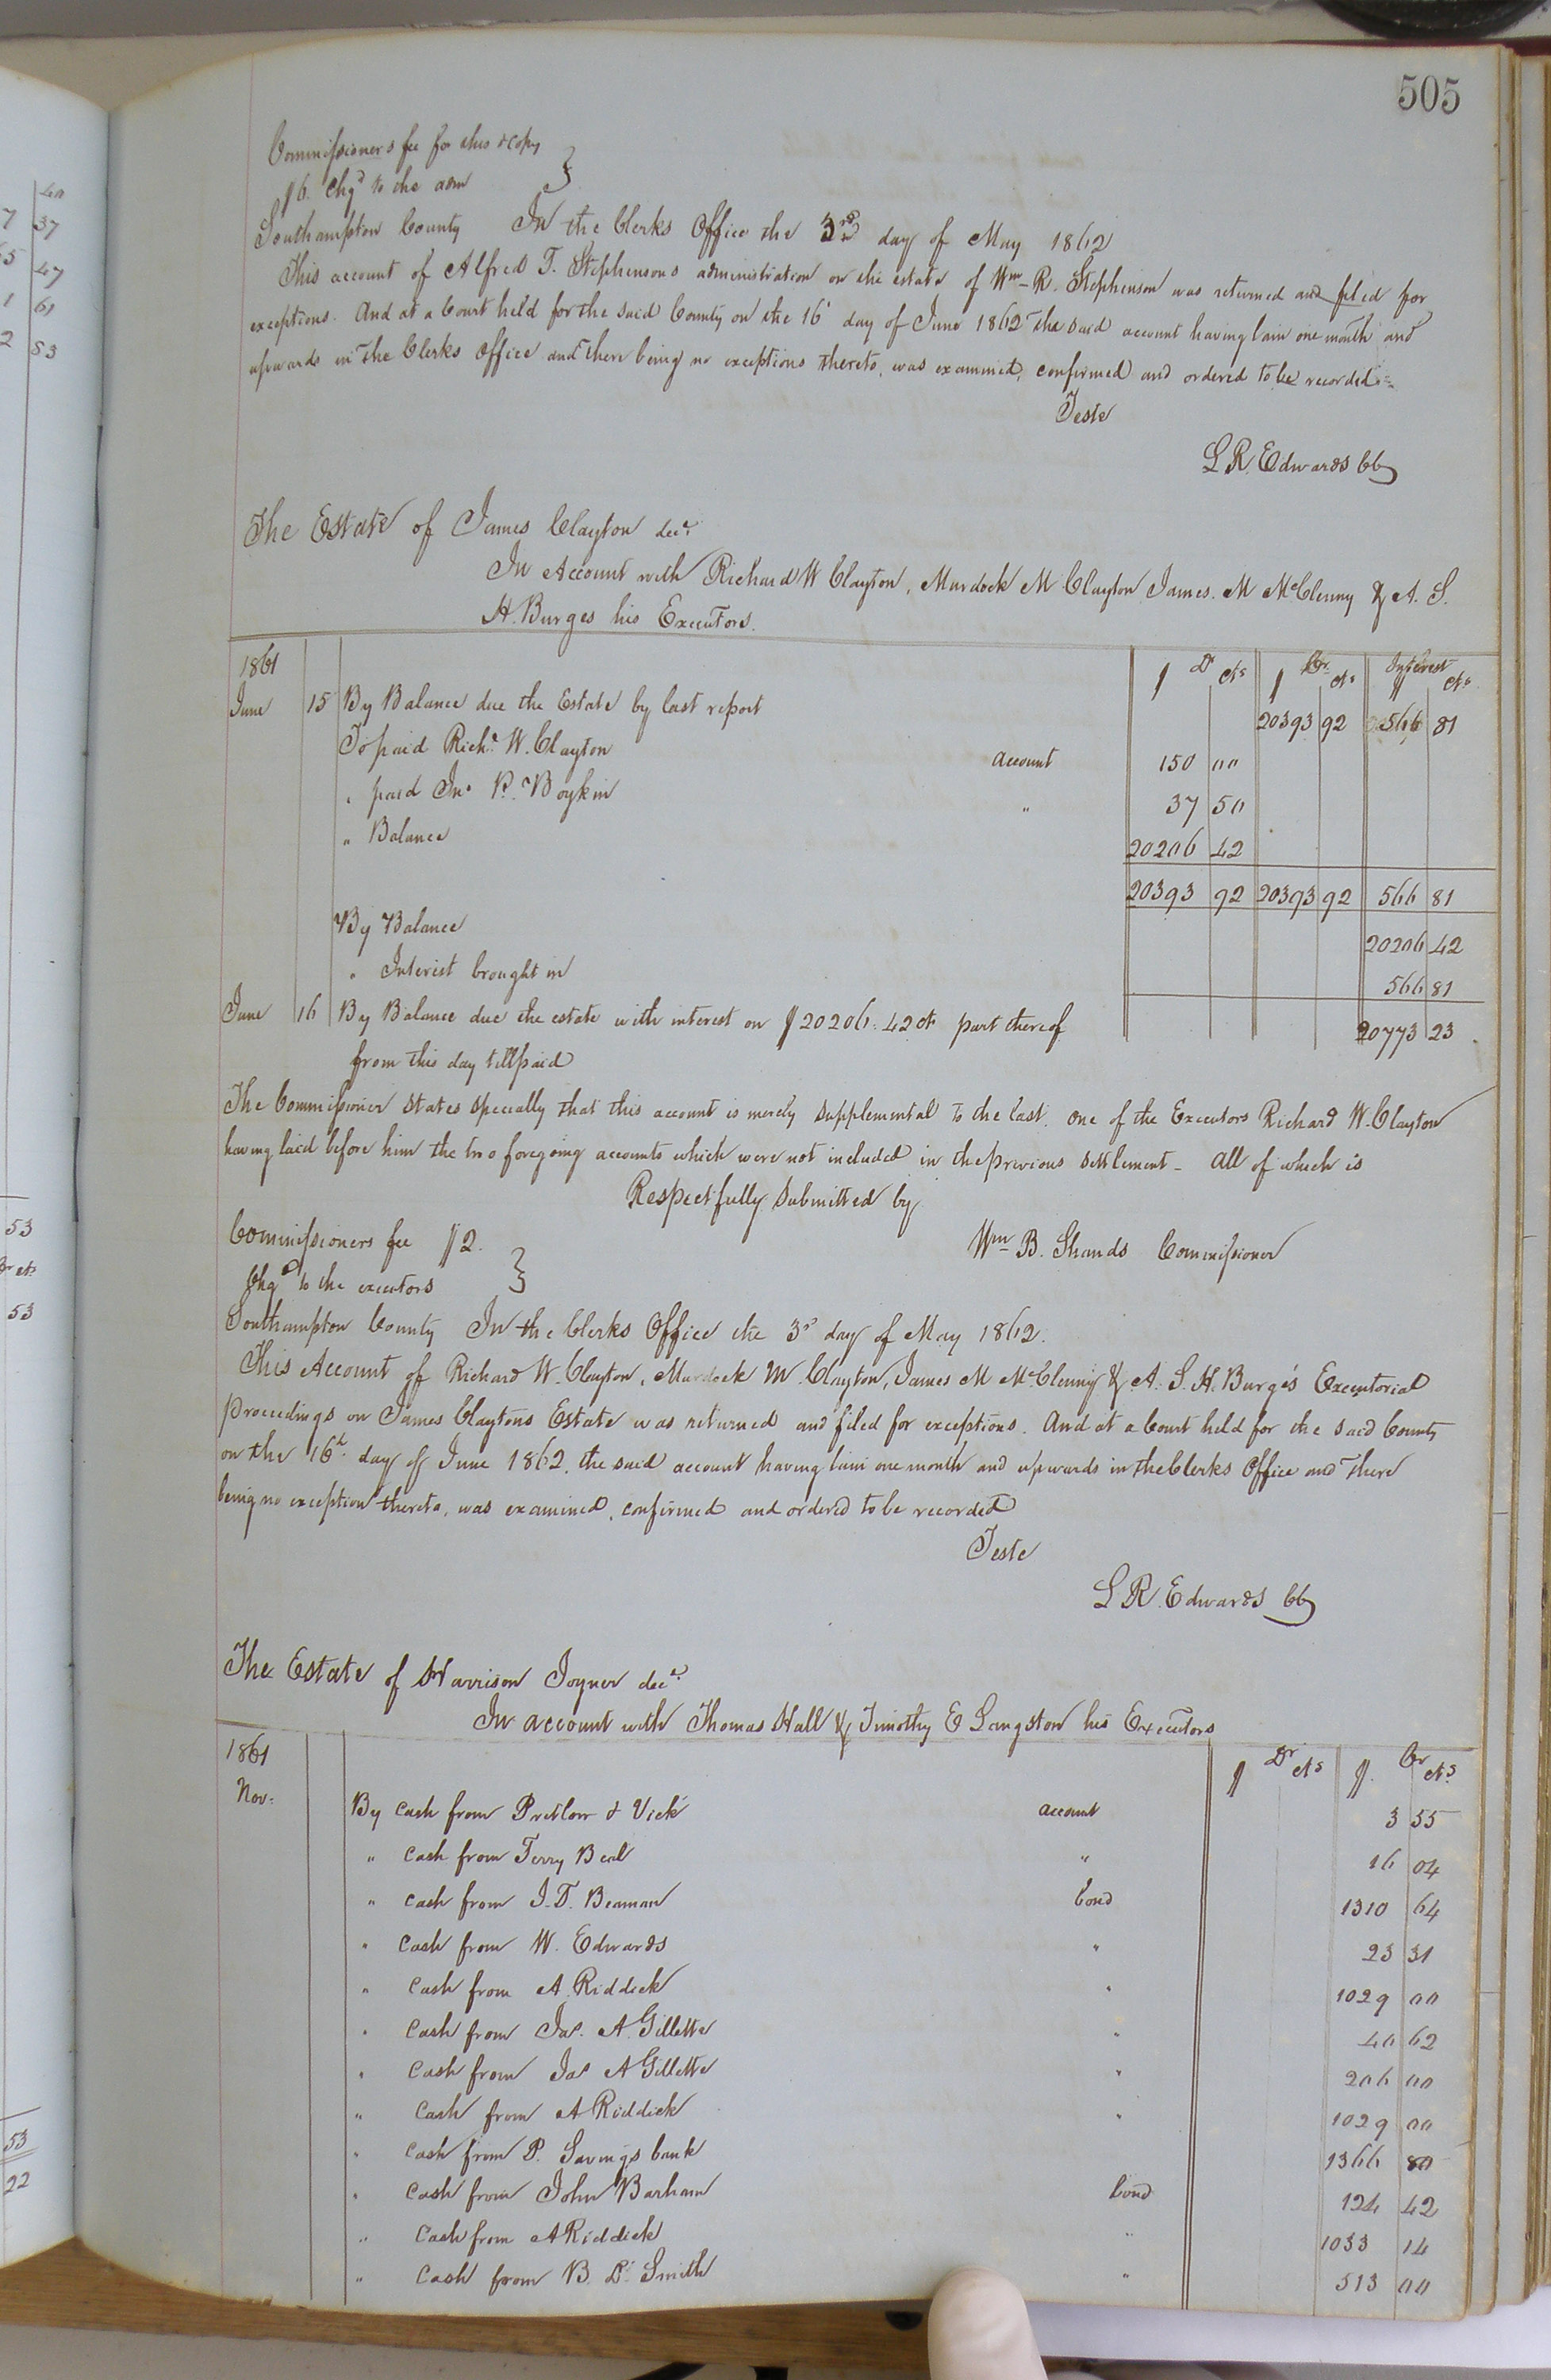 505
Commissioners fee for this & copy
$6. Chgd to the adm }
Southampton County In the Clerks Office the 3rd day of May 1862
This account of Alfred T. Stephensons administration on the estate of Wm R. Stephenson was returned and filed for
exceptions. And at a Court held for the said County on the 16' day of June 1862 the said account having lain one month and
upwards in the Clerks Office and there being no exceptions thereto, was examined, confirmed and ordered to be recorded
Teste
L R. Edwards CC
The Estate of James Clayton decd
In Account with Richard W Clayton, Murdock M Clayton James. M McClenny & A. S.
H. Burges his Executors.
1861 $ Dr cts $ Cr cts Interest $ cts
June 15 By Balance due the Estate by last report 20393 92 566 81
To paid Richd W. Clayton account 150 00
" paid Jno R. Boykin " 37 50
" Balance 20206 42
20393 92 20393 92 566 81
By Balance 20206 42
" Interest brought in 566 81
June 16 By Balance due the estate with interest on $20206.42 cts part thereof 20773 23
from this day till paid
The Commissioner states specially that this account is merely supplemental to the last. one of the Executors Richard W. Clayton
having laid before him the two foregoing accounts which were not included in the previous settlement - all of which is
Respectfully submitted by
Commissioners fee $2. Wm B. Shands Commissioner
Chgd to the executors }
Southampton County In the Clerks Office the 3d day of May 1862.
This Account of Richard W. Clayton, Murdock M Clayton, James M McClenny & A. S. H. Burges' Executorial
proceedings on James Claytons Estate was returned and filed for exceptions. And at a Court held for the said County
on the 16th day of June 1862, the said account having lain one month and upwards in the Clerks Office and there
being no exception thereto, was examined, confirmed and ordered to be recorded
Teste
L R. Edwards CC
The Estate of Harrison Joyner decd
In account with Thomas Hall & Timothy E Langston his Executors
1861 $ Dr cts $ Cr cts
Nov: By cash from Pretlow & Vick account 3 55
" cash from Terry Beal " 16 04
" cash from J. T. Beaman bond 1310 64
" cash from W. Edwards " 23 31
" cash from A. Riddick " 1029 00
" cash from Jas. A. Gillette " 40 62
" cash from Jas A Gillette " 206 00
" cash from A Riddick " 1029 00
" cash from P. Savings bank 1366 80
" cash from John Barham bond 124 42
" cash from A Riddick " 1033 14
" cash from B. D. Smith " 513 00